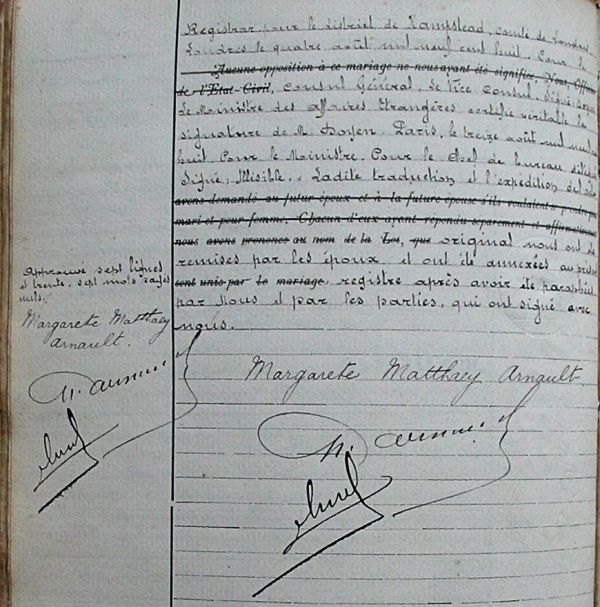 Registrar pour le district de Hampstead, comté de Londres
Londres le quatre août mil neuf cent huit. Pour le
Aucune opposition à ce mariage ne nous ayant été signifiée, Nous, Officier
de l'Etat-Civil, Consul Général. Le Vice Consul. Signé:
Le Ministre des affaires étrangères certifie véritable la
signature de M. Doyen Paris, le treize août mil neuf cent
huit. Pour le Ministre. Pour le Chef de bureau
Signé: Illisible. Ladite traduction et l'expédition de
avons demandé au futur époux et à la future épouse s'ils voulaient se prendre pour
mari et pour femme. Chacun d'eux ayant répondu séparément et affirmativement
nous avons prononcé au nom de la Loi, que original nous ont été
remises par les époux et ont été annexées au présent
sont unis par le mariage, registre après avoir été paraphées
par Nous et par les parties, qui ont signé avec
nous.
Approuvé sept lignes
et trente sept mots rayés
nuls.
Margarete Matthaey
Arnault.
Margarete Matthaey Arnault